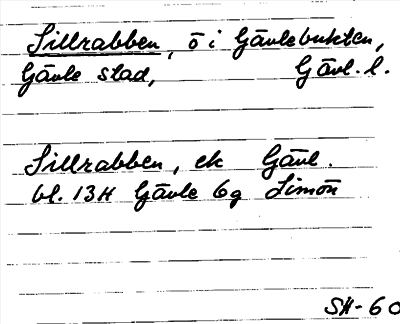 Sillrabben, ö i Gävlebukten,
Gävle stad, Gävl. l.
Sillrabben, ek Gävl.
bl. 13H Gävle 6g Limön
SH-60